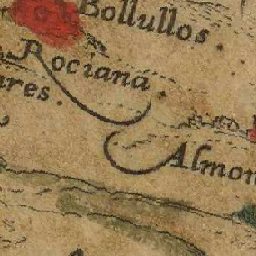 Bollullos.
Rociana.
ares.
Almon